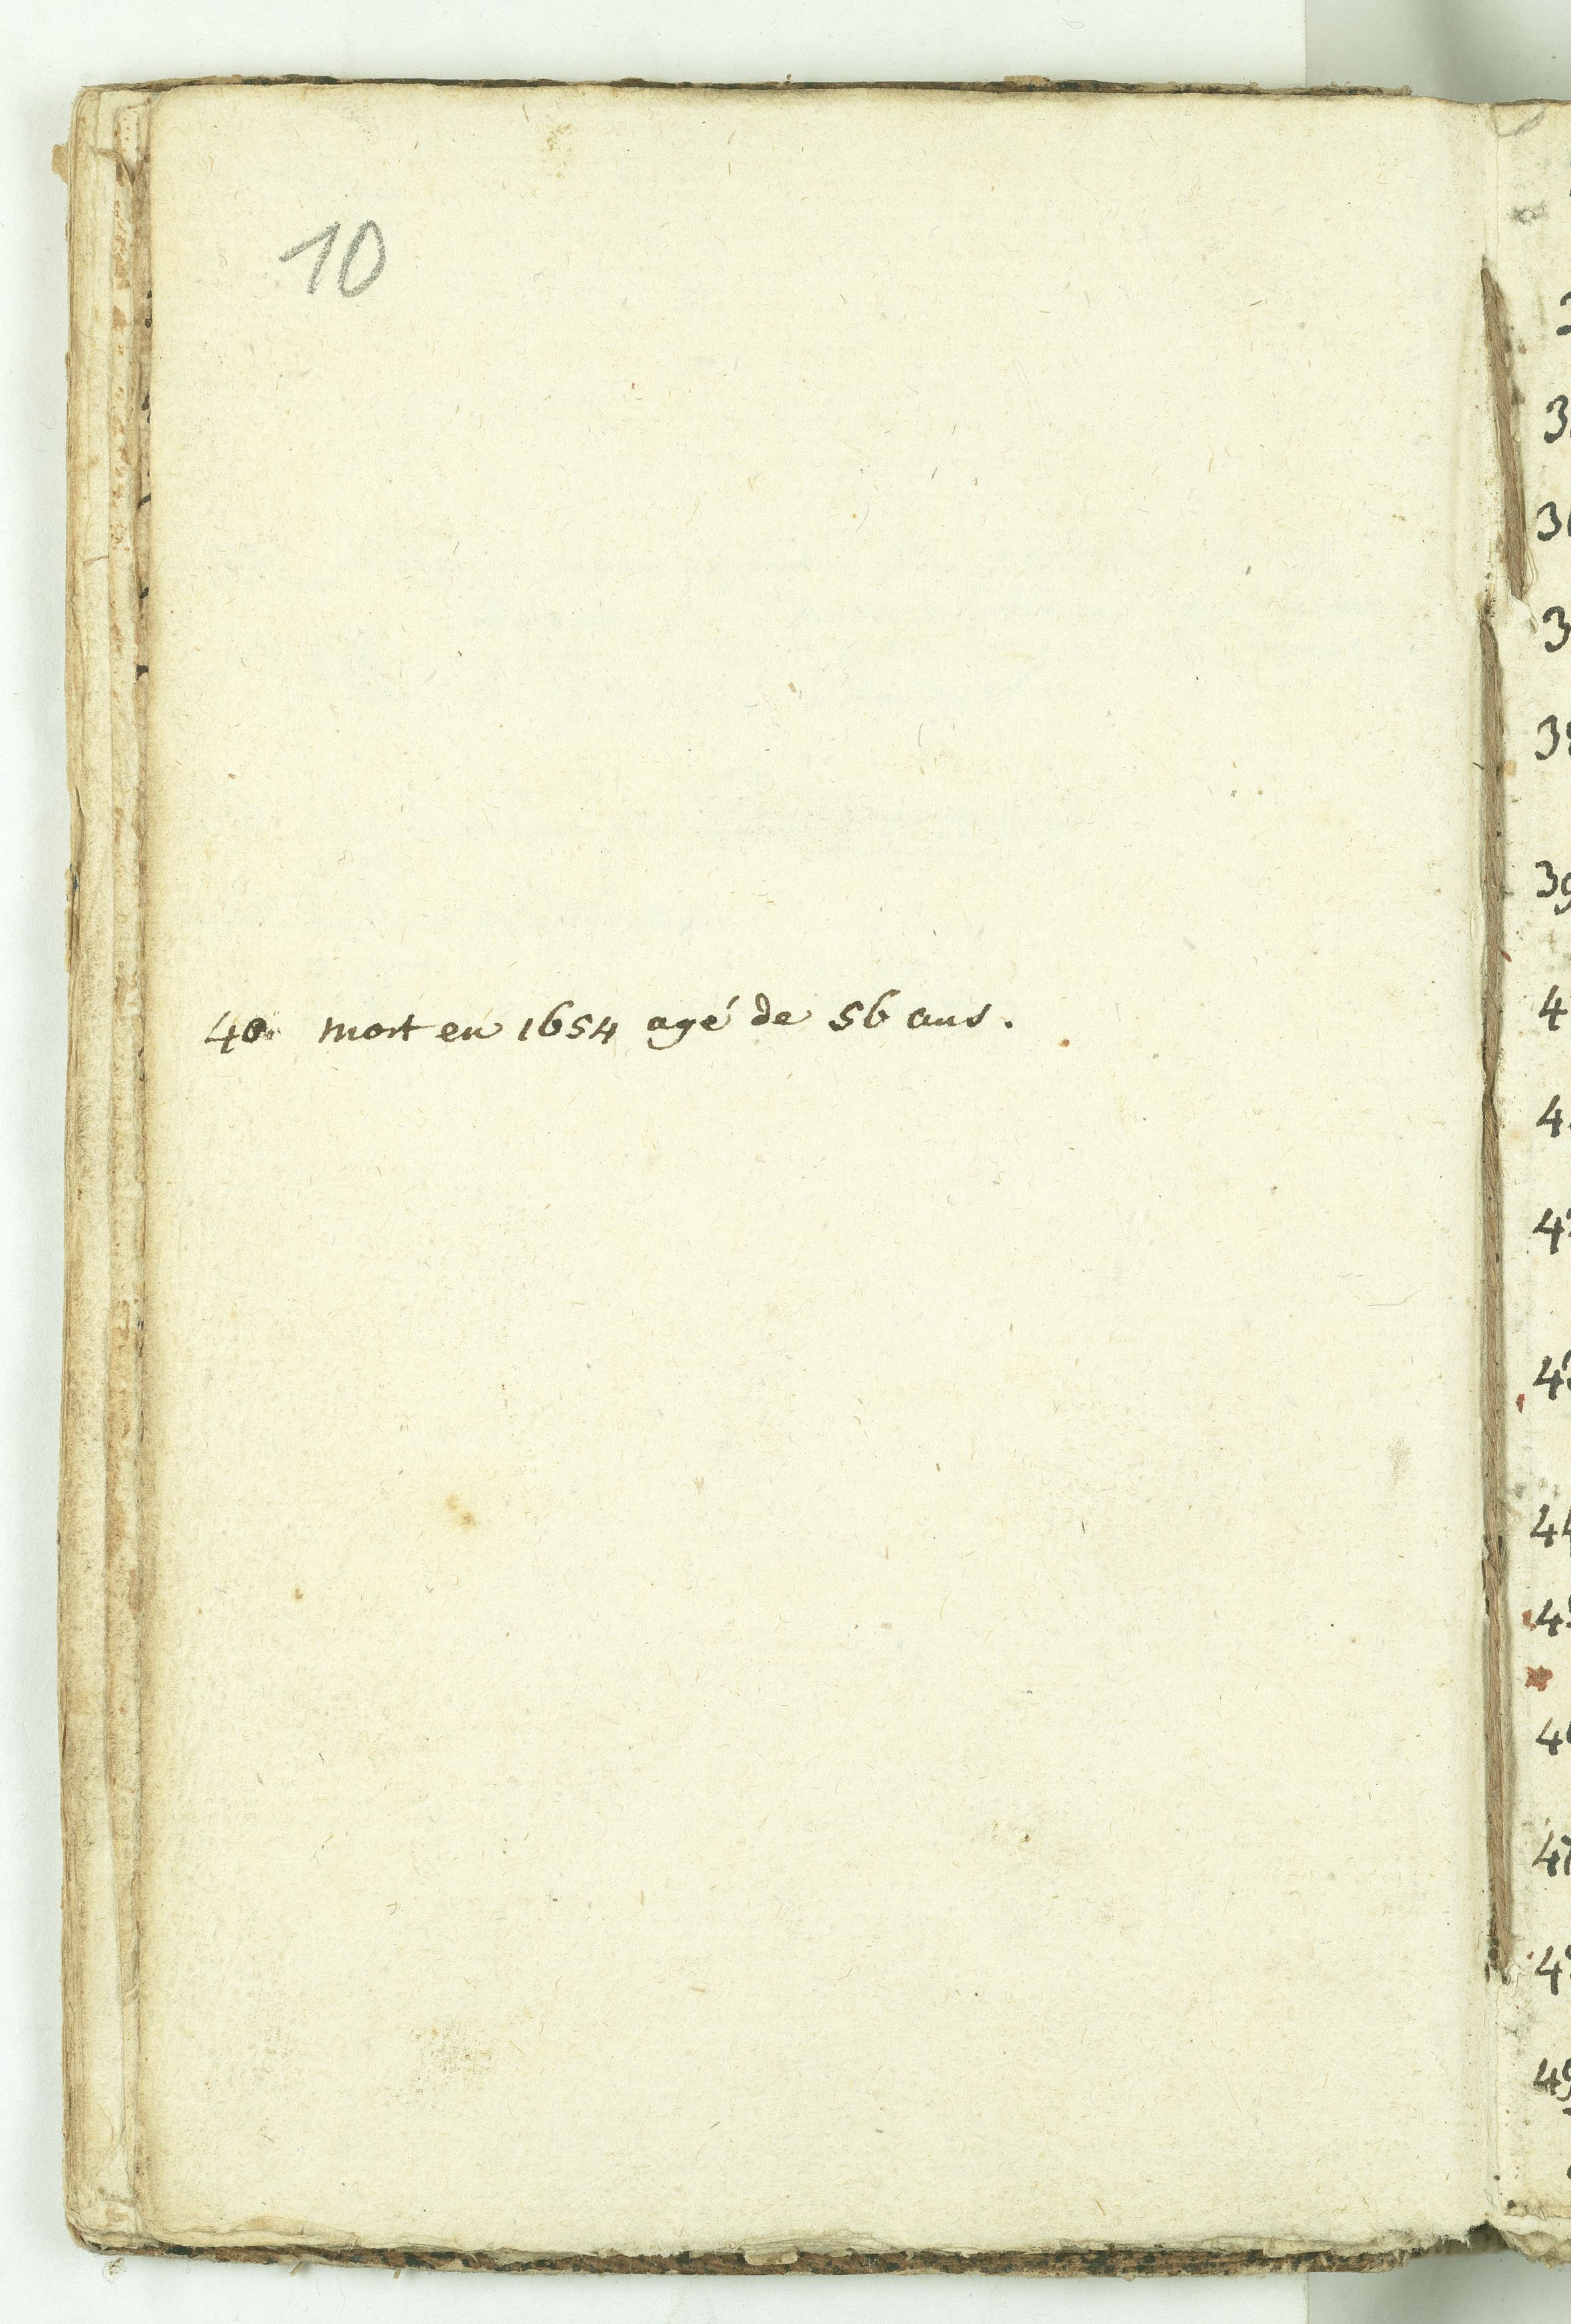 10
40 mort en 1654 agé de 56 ans.
3
3
3
39
4
4
4
4
44
4
4
47
4
49